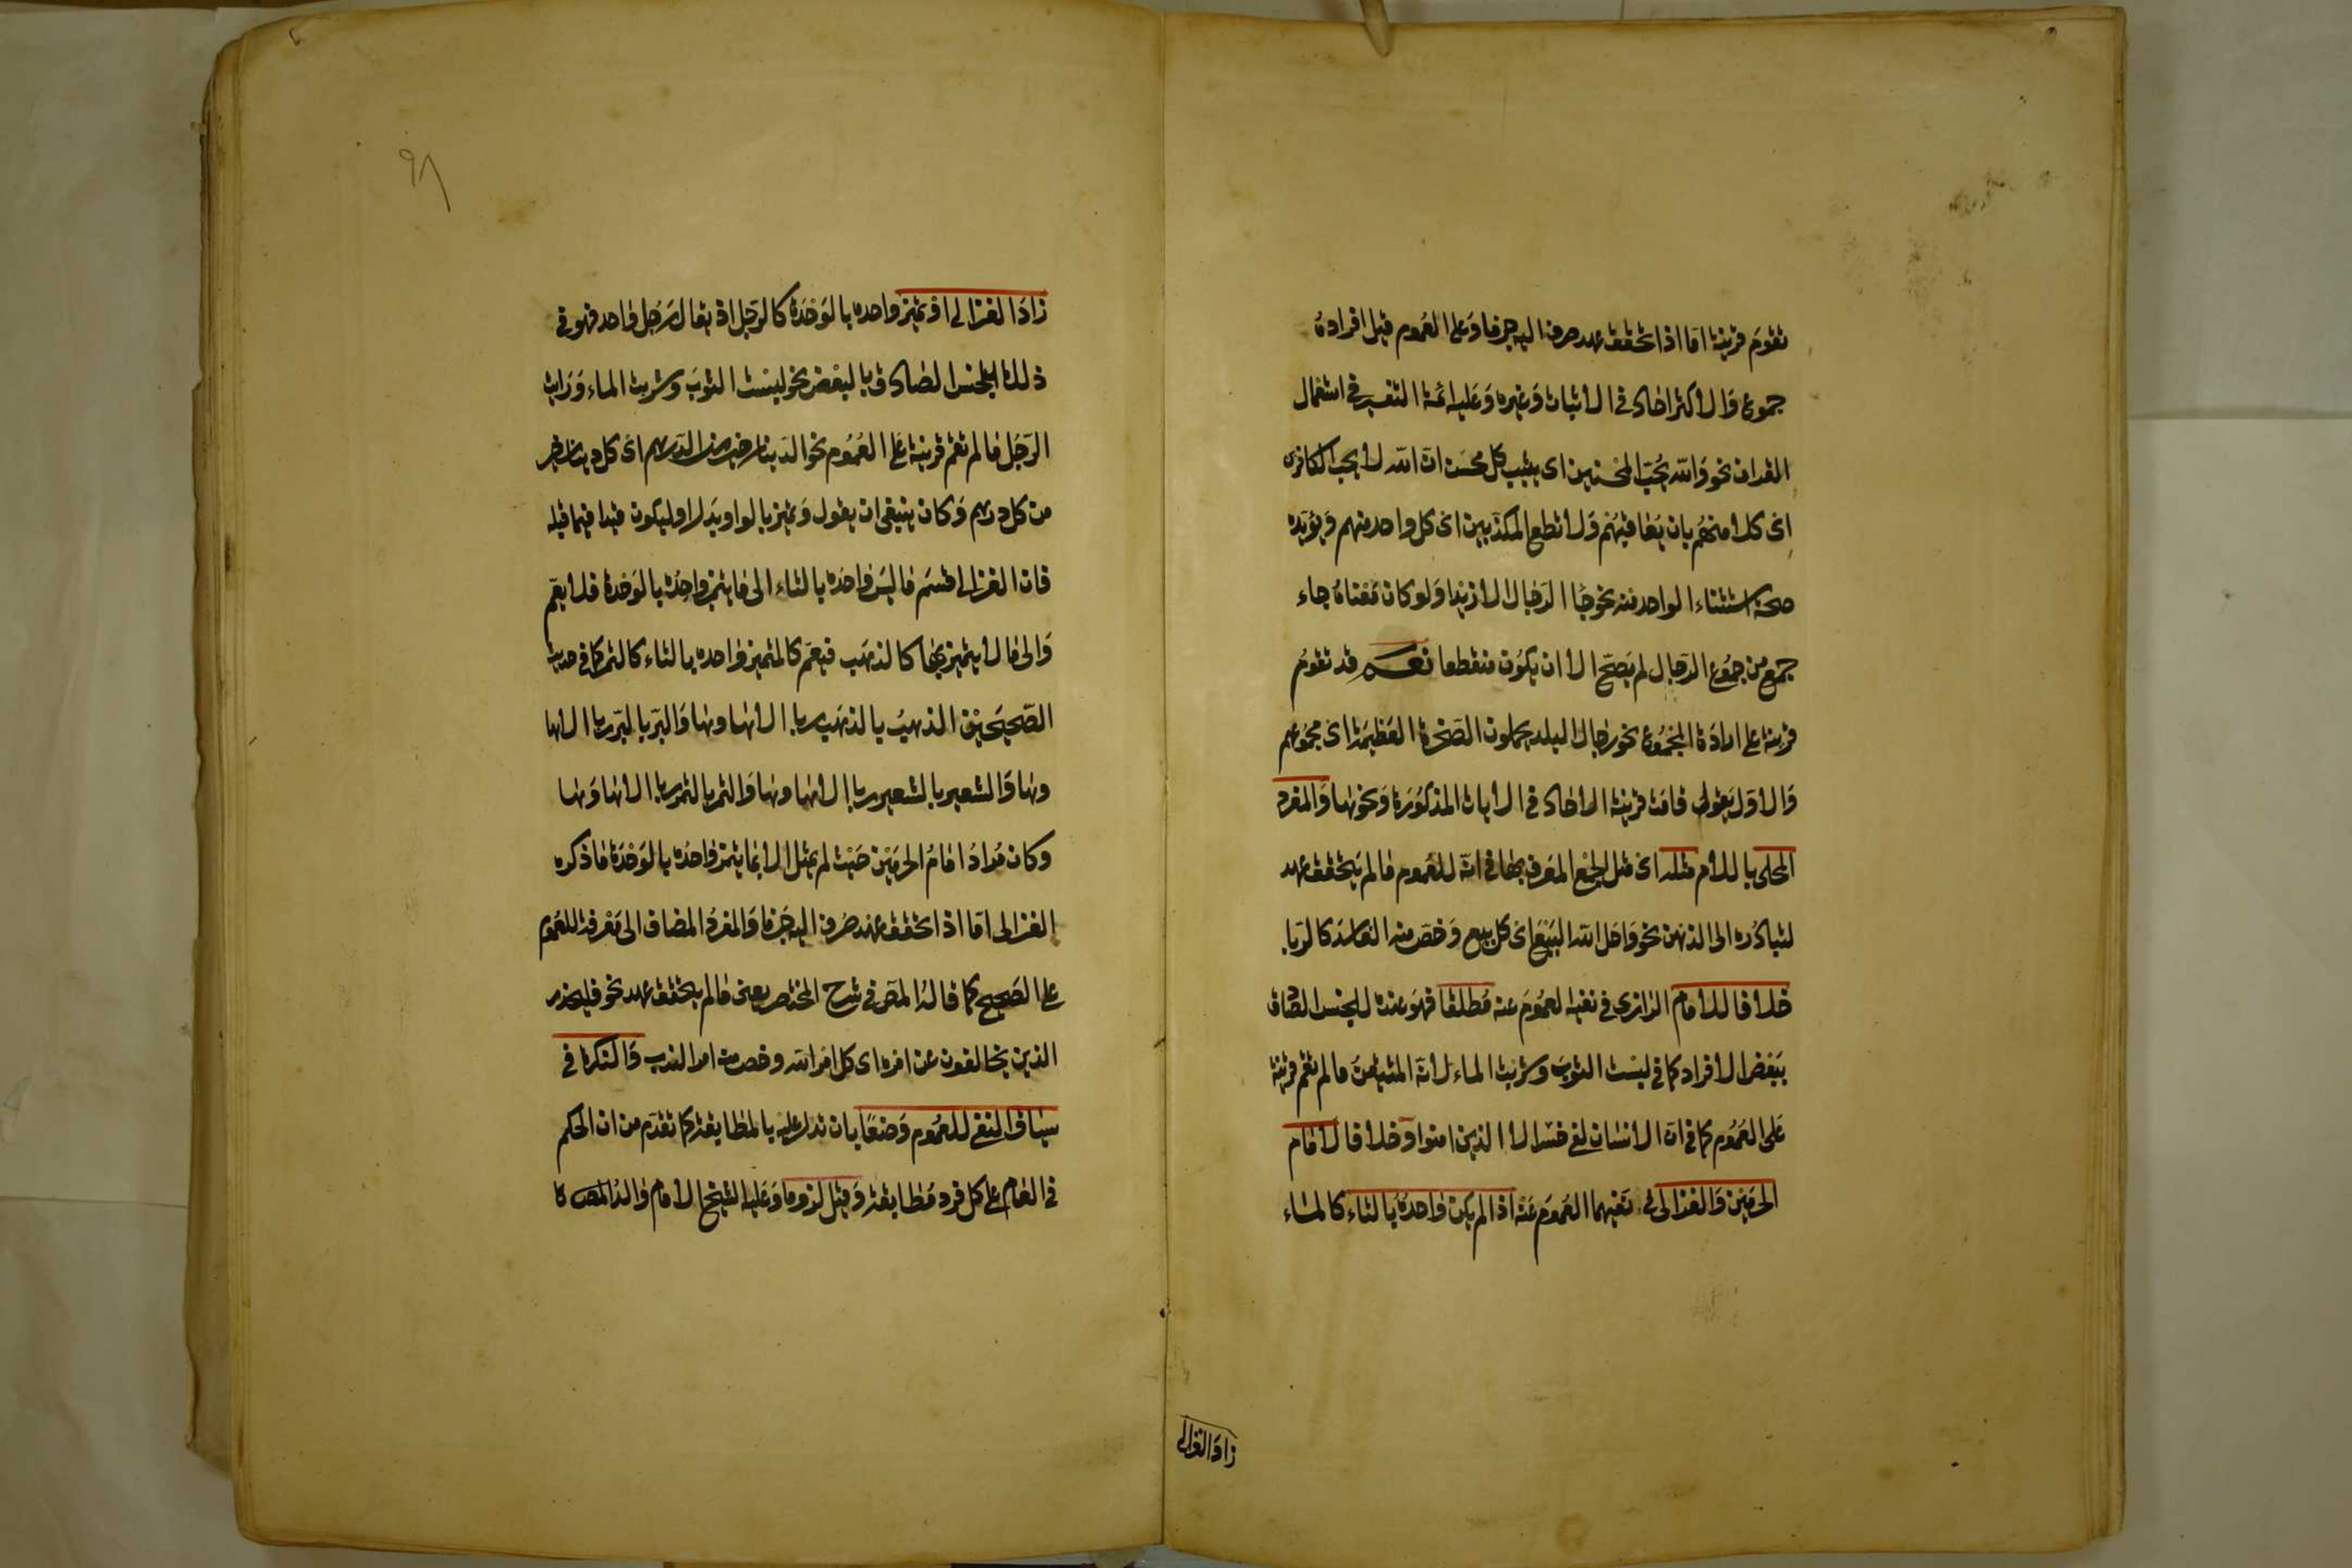 تقوم قرينة اما اذا تحقق عهد صرف اليه جزما وعلى العموم قيل افراده
جموع والاكثر احاد في الاثبات وغيره وعليه ائمة التفسير في استعمال
القران نحو والله يحب المحسنين اى يثيب كل محسن ان الله لا يحب الكافرين
اى كلا منهم بان يعاقبهم ولا تطع المكذبين اى كل واحد منهم ويؤيده
صحة استثناء الواحد منه نحو جا الرجال الا زيدا ولو كان معناه جاء
جمع من جموع الرجال لم يصح الا ان يكون منقطعا نعم قد تقوم
قرينة على ارادة المجموع نحو رجال البلد يحملون الصخرة العظيمة اى مجموعهم
والاول يقول قامت قرينة الاحاد في الايات المذكورة ونحوها والمفرد
المحلى باللام مثله اى مثل الجمع المعرف بها في انه للعموم مالم يتحقق عهد
لتبادره الى الذهن نحو واحل الله البيع اى كل بيع وخص منه الفاسد كالربا
خلافا للامام الرازى في نفيه العموم عنه مطلقا فهو عنده للجنس الصادق
ببعض الافراد كما في لبست الثوب وشربت الماء لانه المتيقن مالم تقم قرينة
على العموم كما في ان الانسان لفي خسر الا الذين امنوا و خلافا لامام
الحرمين والغزالى في نفيهما العموم عنه اذا لم يكن واحده بالتاء كالماء
زاد الغزالى
٩٨
زاد الغزالى او تميز واحده بالوحدة كالرجل اذ يقال رجل واحد فهو في
ذلك للجنس الصادق بالبعض نحو لبست الثوب وشربت الماء ورايت
الرجل مالم تقم قرينة على العموم نحو الدينار خير من الدرهم اى كل دينار خير
من كل درهم وكان ينبغى ان يقول وتميز بالواو بدل او ليكون قيدا فيما قبله
فان الغزالى قسم ما ليس واحده بالتاء الى ما يتميز واحده بالوحدة فلا يعم
والى مالا يتميز بها كالذهب فيعم كالمتميز واحده بالتاء كالتمر كما في حديث
الصحيحين الذهب بالذهب ربا الا هاء وهاء والبر بالبر ربا الا هاء
وهاء والشعير بالشعير ربا الا هاء وهاء والتمر بالتمر ربا الا هاء وهاء
وكان مراد امام الحرمين حيث لم يمثل الا بما يتميز واحده بالوحدة ما ذكره
الغزالى اما اذا تحقق عهد صرف اليه جزما والمفرد المضاف الى معرفة للعموم
على الصحيح كما قاله المص في شرح المختصر يعنى مالم يتحقق عهد نحو فليحذر
الذين يخالفون عن امره اى كل امر الله وخص منه امر الندب والنكرة في
سياق النفى للعموم وضعا بان تدل عليه بالمطابقة كما تقدم من ان الحكم
في العام على كل فرد مطابقة وقيل لزوما وعليه الشيخ الامام والد المص